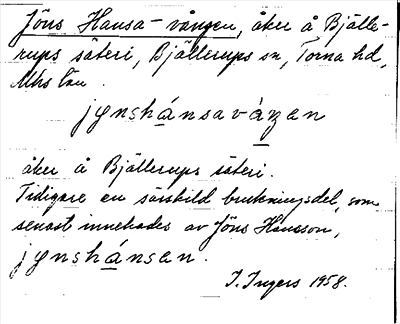 Jöns Hansa-vången, åker å Bjälle-
rups säteri, Bjällerups sn, Torna hd,
Mhs län.
jɵnshánsaváŋen
åker å Bjällerups säteri.
Tidigare en särskild brukningsdel, som
senast innehades av Jöns Hansson,
jɵnshánsen.
I. Ingers 1958.